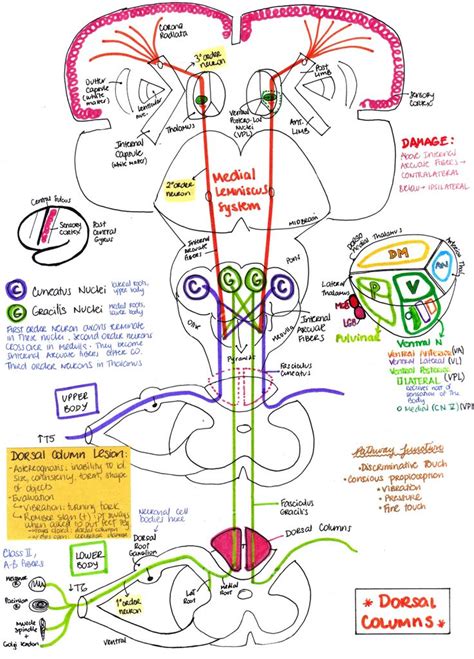 Corona
Radiata
3° order
neuron
Outter
Capsule
(white
matter)
Thalamus
Internal
Capsule
(white matter)
Ventral
Postero-Lat
Nuclei
(VPL)
Post
Limb
Ant.
Limb
Sensory
Cortex
DAMAGE:
Above Internal
Arcuate Fibers →
CONTRALATERAL
Below → IPSILATERAL
2° order
neuron
Medial
Lemniscus
System
MIDBRAIN
Central Sulcus
Sensory
Cortex
Post
Central
Gyrus
Internal
Arcuate
Fibers
Pons
C Cuneatus Nuclei
lateral roots,
upper body
G Gracilis Nuclei
medial roots,
lower body
First order neuron axons terminate
in these nuclei, second order neurons
crossover in medulla. They become
Internal arcuate fibers
Third order neurons in Thalamus
C G G C
Medulla
Internal
Arcuate
FIBERS
Pyramids
Fasciculus
Cuneatus
Lateral
Thalamus
DM
AN
P
V
MGB
LGB
Pulvinar
Ventral N
Ventral Anterior (VA)
Ventral Lateral (VL)
Ventral Posterior
LATERAL (VPL)
Medial (CN V)
UPPER
BODY
↑T5
Dorsal Column Lesion:
- Astereognosis: inability to id
size, consistency, form, shape
of objects
- Evaluation
Vibration: tuning fork
Romberg sign (+)
Neuronal cell
bodies here
Fasciculus
Gracilis
Pathway function
• Discriminative Touch
• Conscious proprioception
- Vibration
- Pressure
- Fine touch
Dorsal
Root
Ganglion
Dorsal Columns
Class II,
A-B Fibers
LOWER
BODY
↓T6
Muscle
Spindle
+
Golgi tendon
1° order
neuron
Ventral
Lat
Root
Medial
Root
* DORSAL
COLUMNS *